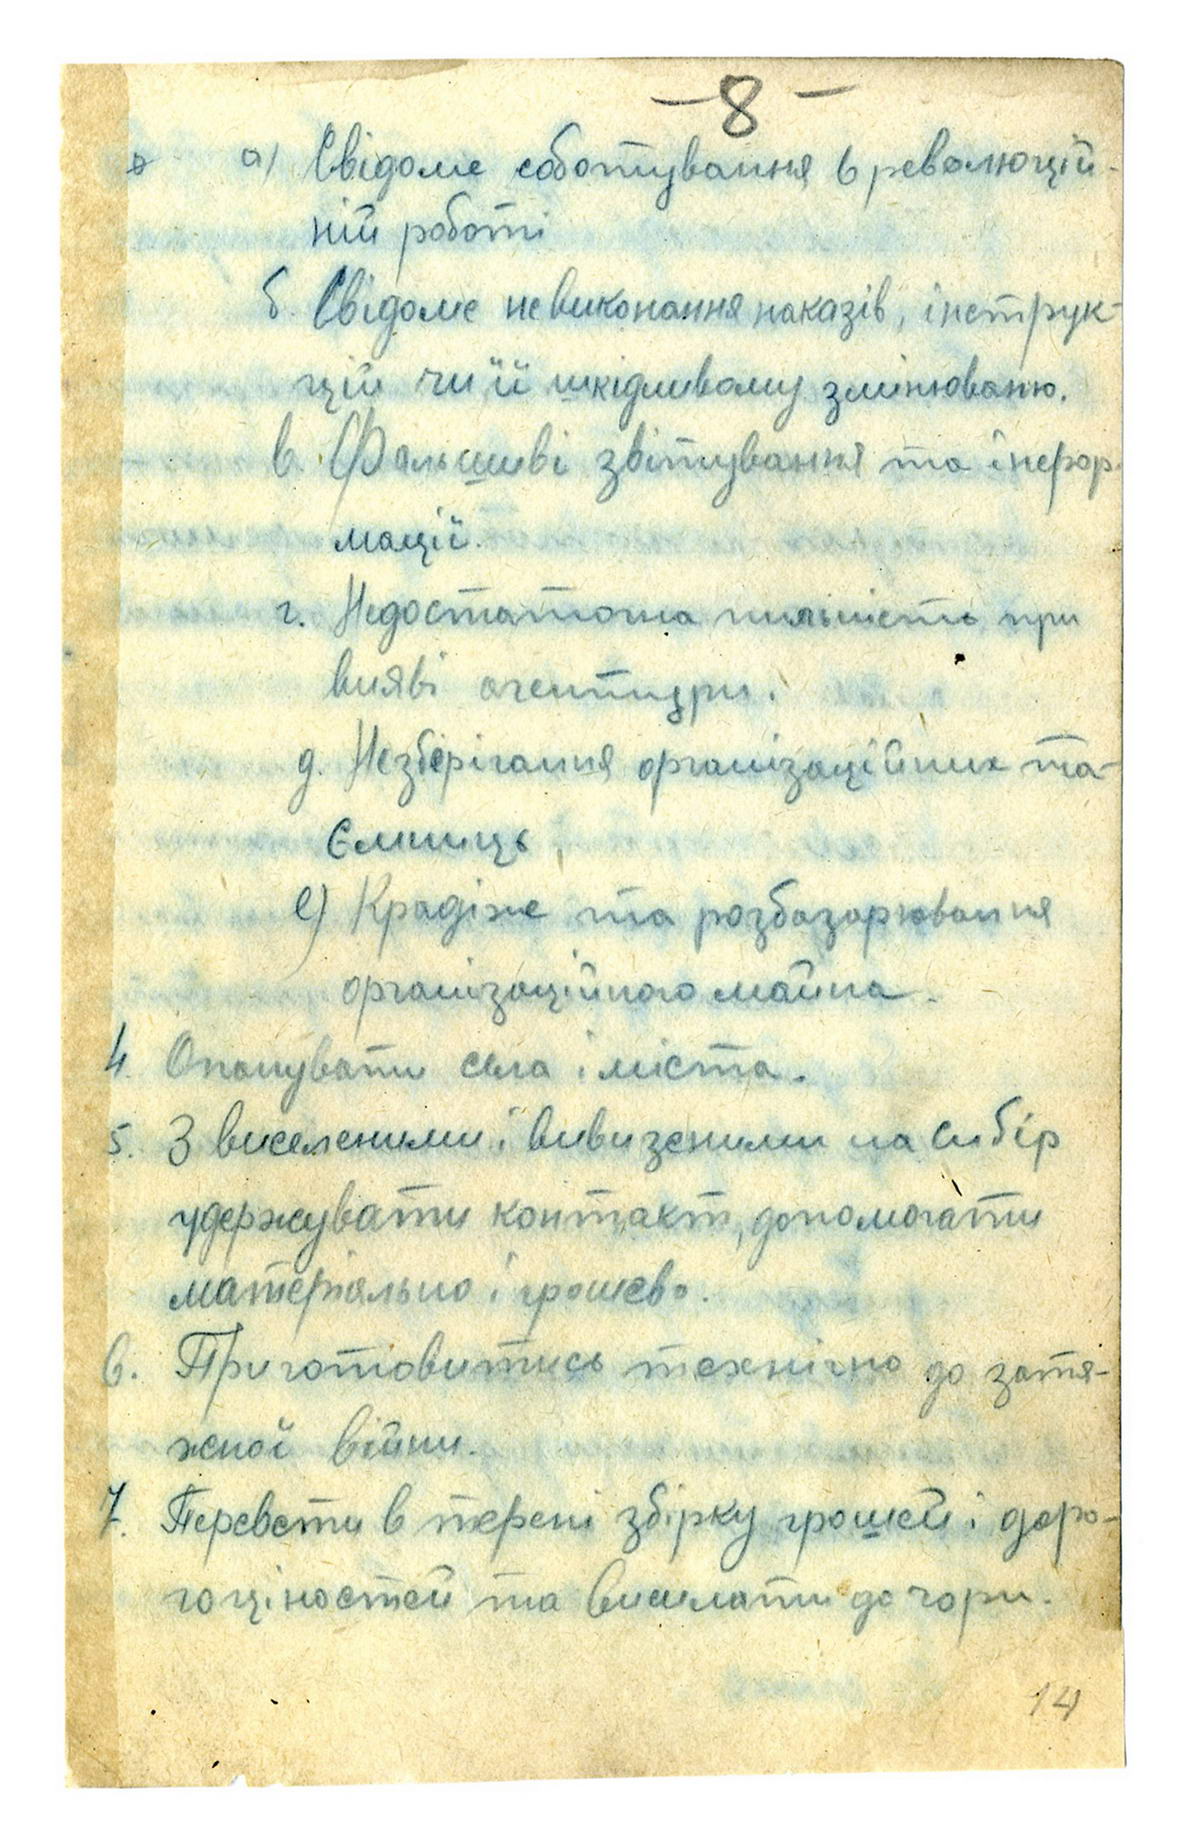 –8–
а) Свідоме соботування в революцій-
ній роботі
б. Свідоме невиконання наказів, інструк-
цій чи її шкідливому змінюваню.
в. Фальшиві звітування та інфор-
мації.
г. Недостаточна пильність при
вияві агентури.
д. Незберігання організаційних та-
ємниць,
е) Крадіже та розбазарювання
організаційного майна.
4. Опанувати села і міста.
5. З виселеними і вивизеними на Сибір
удержувати контакт, допомогати
матеріально і грошево.
6. Приготовитись технічно до затя-
жної війни.
7. Перевести в терені збірку грошей і доро-
гоціностей та висилати до гори.
14